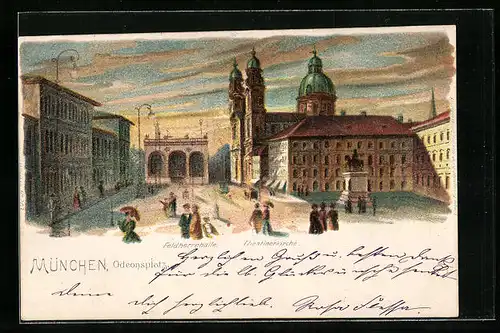 Feldherrnhalle. Theatinerkirche.
MÜNCHEN, Odeonsplatz.
Herzlichen Gruß u. besten Dank
für die lb. Glückwünsche sendet
dich herzlichst. Rosa